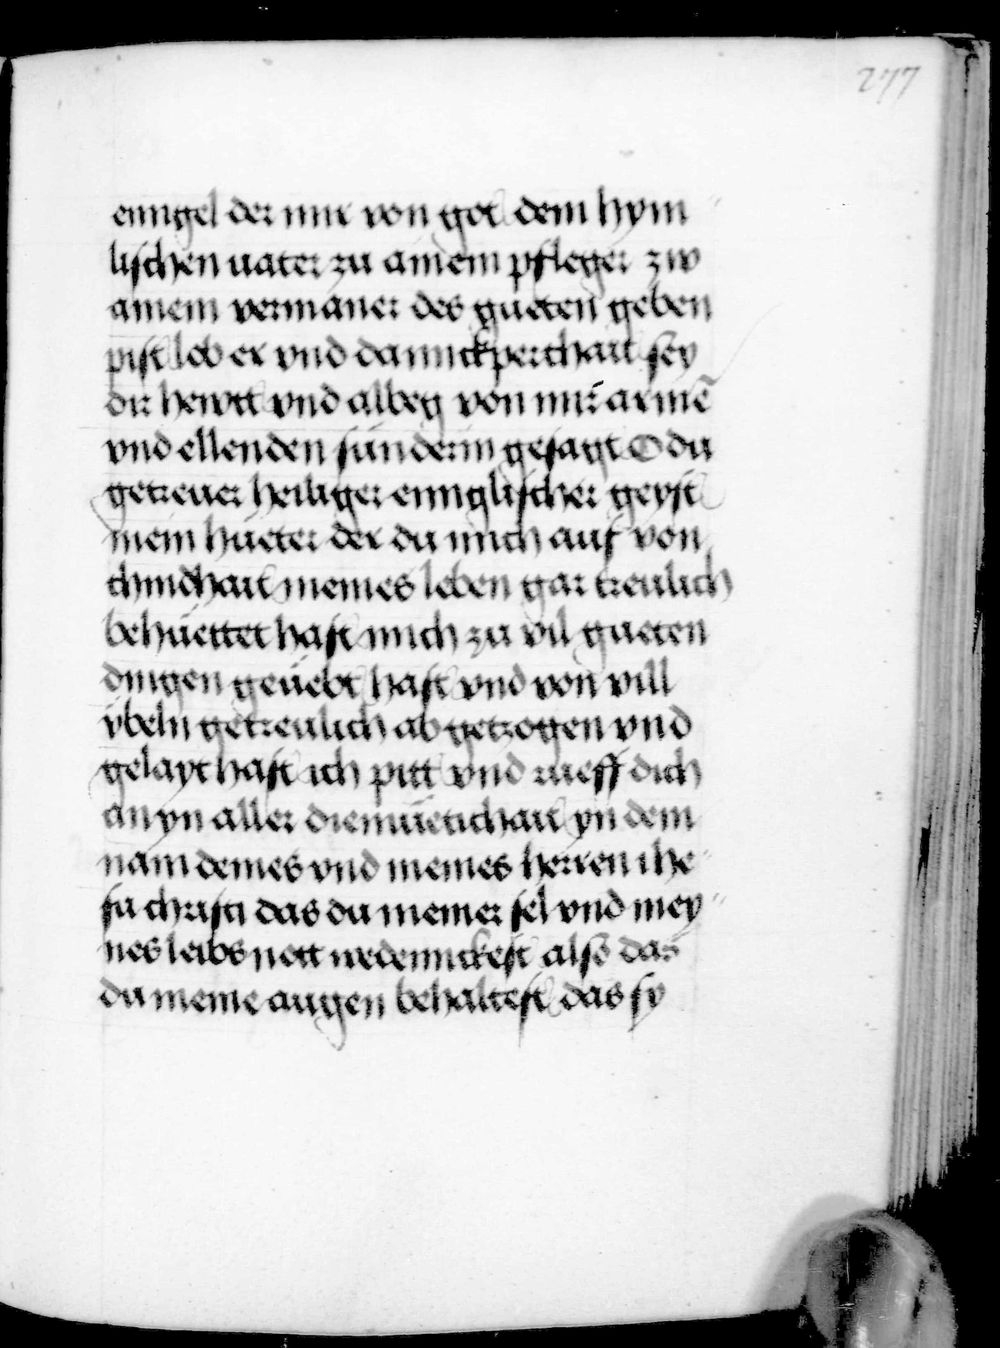 277
enngel der mir von got dem hym
lischen uater zu ainem pfleger zw
ainem vermaner des gueten geben
pist lob er vnd dannckperchait sey
dir hewtt vnd albeg von mir armē
vnd ellenden sünderin gesagt O du
getreuer heiliger enngelischer geyst
mein hüeter der du mich auf von
chindhait meines leben gar treulich
behüettet hast mich zu vil gueten
dingen geüebt hast vnd von vill
vbeln getreulich ab getzogen vnd
gelayt hast ich pitt vnd rueff dich
an yn aller diemüetichait yn dem
nam deines vnd meines herren ihe
su christi das du meiner sel vnd mey
nes leibs nott uedennckest also das
du meine augen behaltest das sy